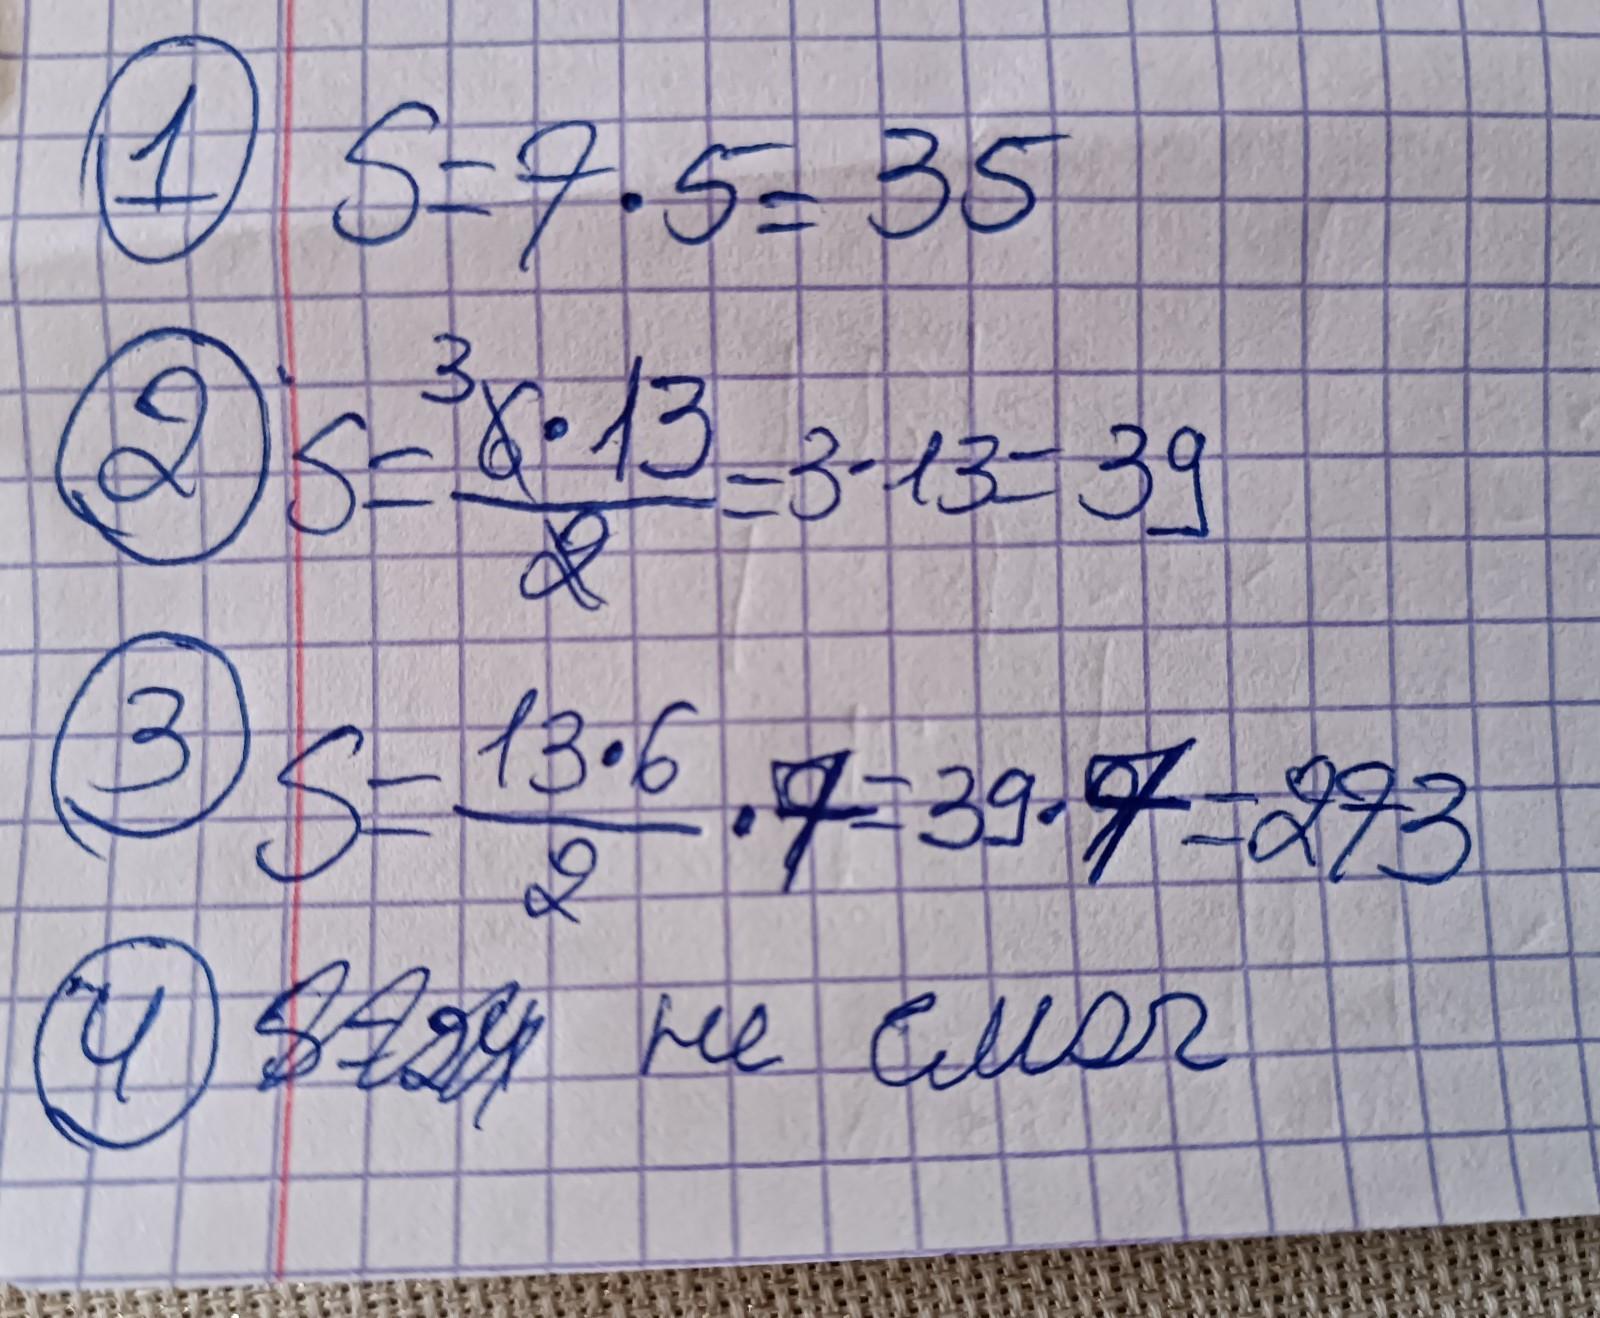 1 S = 7 · 5 = 35
2 S = ³6 · 13 / 2 = 3 · 13 = 39
3 S = 13 · 6 / 2 · 7 = 39 · 7 = 273
4 не смог